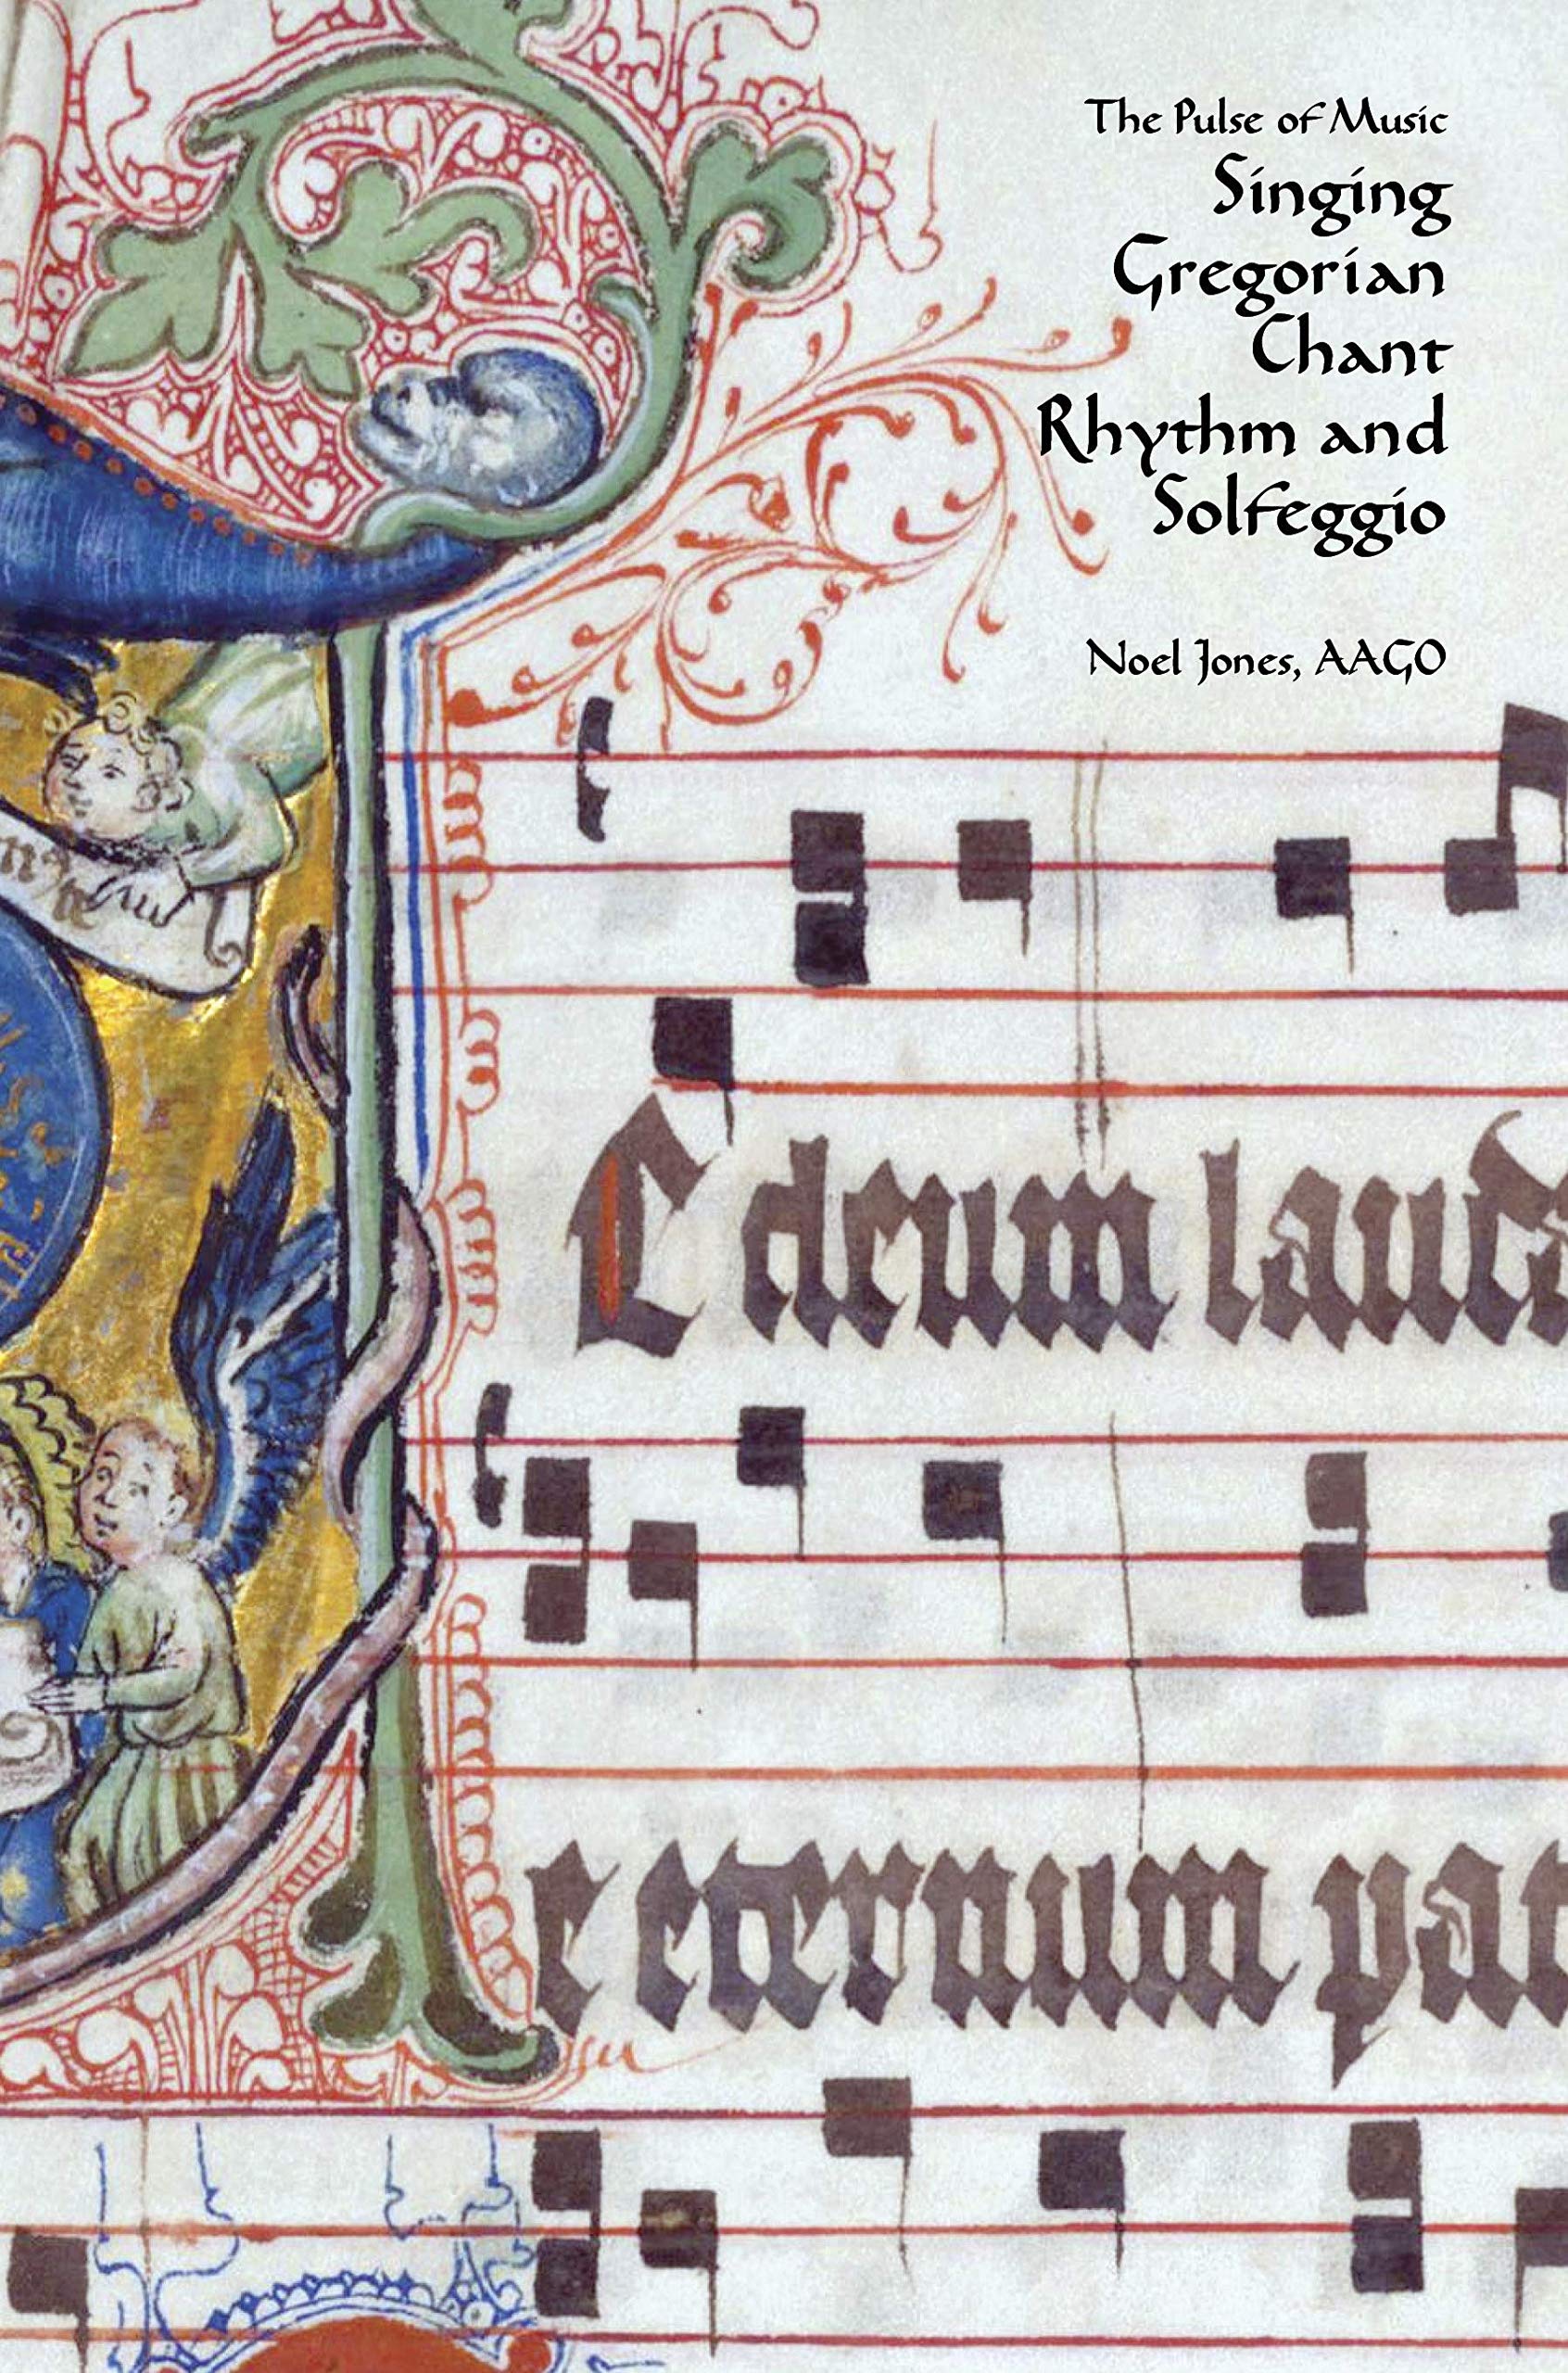 The Pulse of Music
Singing
Gregorian
Chant
Rhythm and
Solfeggio
Noel Jones, AAGO
E deum lauda
e eternum pat